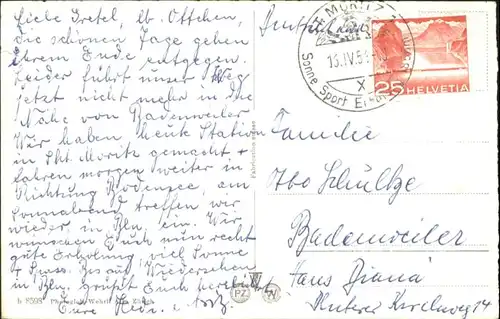 Liebe Gretel, lb. Ottchen,
Die schönen Tage gehen
ihrem Ende entgegen.
Leider führt unser Weg
jetzt nicht mehr in die
Nähe von Badenweiler
Wir haben heute Station
in Skt. Moritz gemacht +
fahren morgen weiter in
Richtung Bodensee, am
Sonnabend treffen wir
wieder in Bln. ein. Wir
wünschen Euch nun recht
gute Erholung, viel Sonne
+ Spass. Bis auf Wiedersehen
in Bln. grüßt Euch herzlichst
Eure
b 8598 Photoglob-Wehrli Zürich
PZ W
Deutschland
MORITZ
13.IV.5
Sonne Sport
X
25 HELVETIA
Familie
Schultze
Badenweiler
Haus Diana
Unterer Kirchweg 14